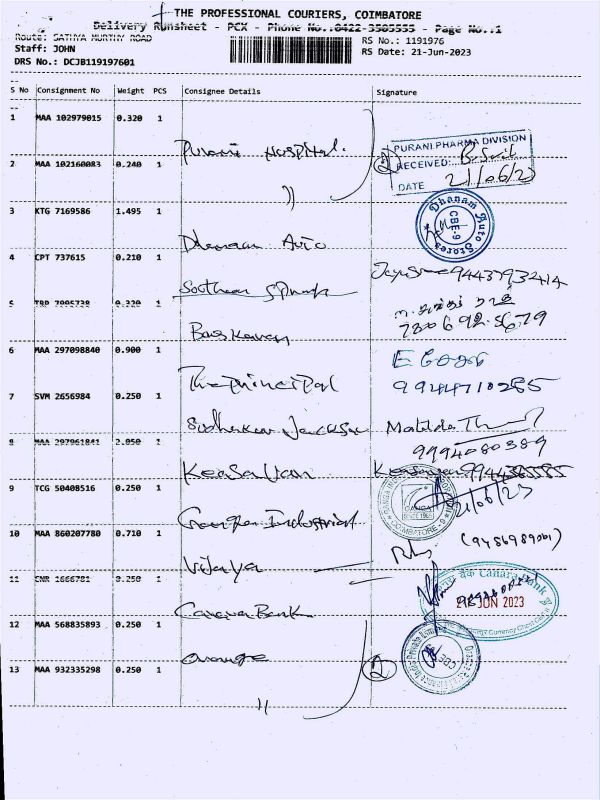 THE PROFESSIONAL COURIERS, COIMBATORE
Delivery Runsheet - PCX - Phone No.:0422-3505555 - Page No.:1
Route: SATHYA MURTHY ROAD
RS No.: 1191976
Staff: JOHN
RS Date: 21-Jun-2023
DRS No.: DCJB119197601
S No Consignment No Weight PCS Consignee Details Signature
1 MAA 102979015 0.320 1
Purani Hospital.
PURANI PHARMA DIVISION
RECEIVED:
DATE 21/06/23
2 MAA 102160083 0.240 1
"
2
3 KTG 7169586 1.495 1
Dhanam Auto
Dhanam Auto Stores
CBE-9
4 CPT 737615 0.210 1
Southern
9443793414
5 TRP 7095738 0.320 1
Baskaran
6 MAA 297098840 0.900 1
The Principal
9944710285
7 SVM 2656984 0.250 1
Sudhakar Jackson
Matilda
9994080389
8 MAA 297961841 2.050 1
Keasavan
9 TCG 50408516 0.250 1
Ganga Industrial
COIMBATORE - 9
21/06/23
10 MAA 860207780 0.710 1
Vijaya
(9486989001)
11 CNR 1666781 0.250 1
Canara Bank
Canara Bank
21 JUN 2023
12 MAA 568835893 0.250 1
Orange
13 MAA 932335298 0.250 1
"
2